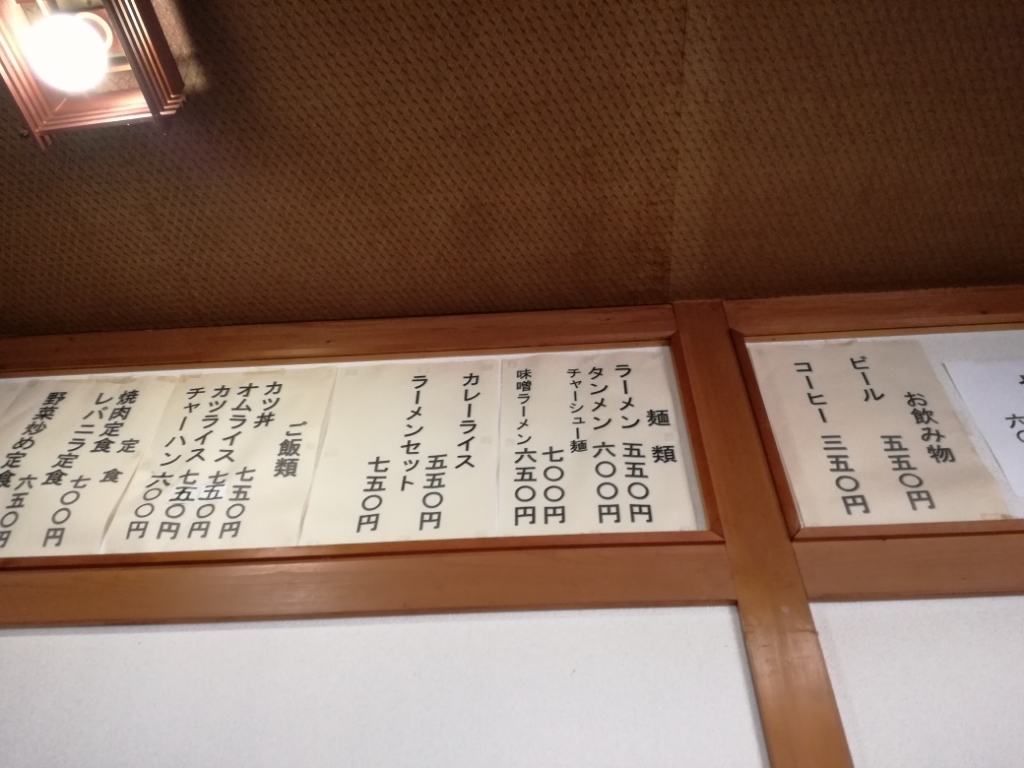 お飲み物
ビール 五五〇円
コーヒー 三五〇円
麺類
ラーメン 五五〇円
タンメン 六〇〇円
チャーシュー麺 七〇〇円
味噌ラーメン 六五〇円
カレーライス 五五〇円
ラーメンセット 七五〇円
ご飯類
カツ丼 七五〇円
オムライス 七五〇円
カツライス 七五〇円
チャーハン 六〇〇円
定食
焼肉定食
レバニラ定食 七〇〇円
野菜炒め定食 六五〇円